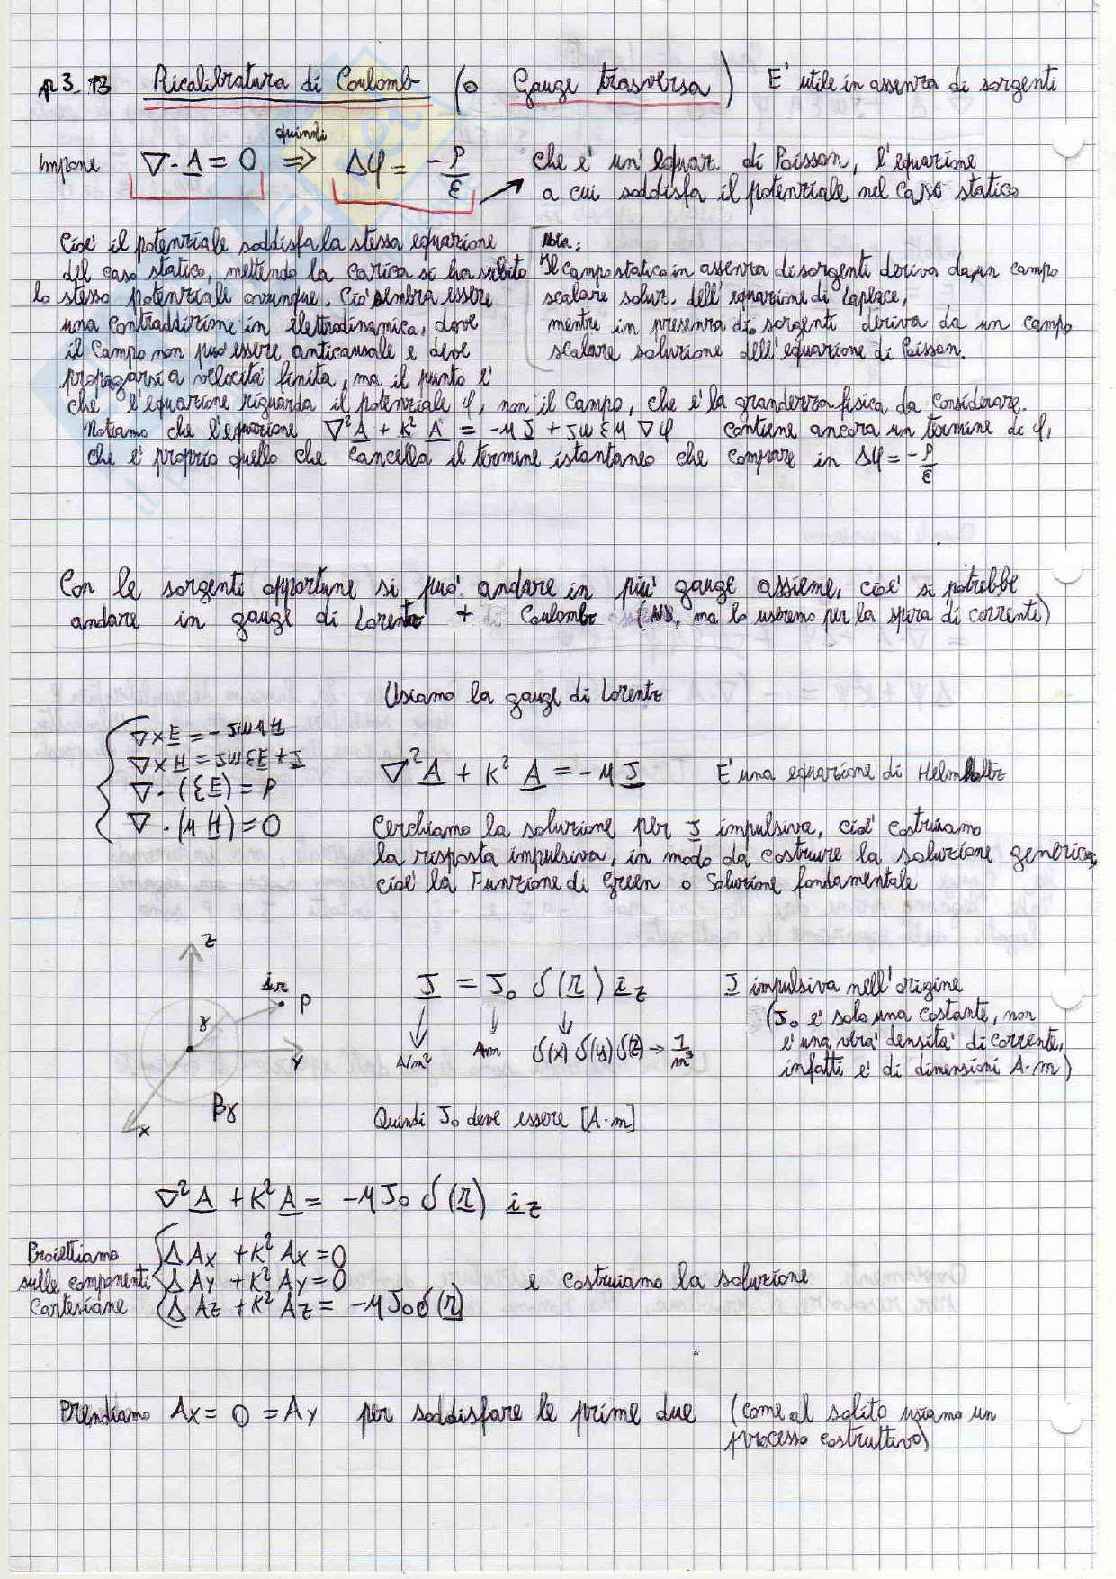 3.13 Ricalibratura di Coulomb (o Gauge trasversa) E' utile in assenza di sorgenti
quindi
Impone ∇·A = 0 => Δφ = -ρ/ε che e' un' equaz. di Poisson, l'equazione
a cui soddisfa il potenziale nel caso statico
Cioe' il potenziale soddisfa la stessa equazione
del caso statico, mettendo la carica si ha subito
lo stesso potenziale ovunque. Cio' sembra essere
una contraddizione in elettrodinamica, dove
il campo non puo' essere anticausale e deve
propagarsi a velocita' finita, ma il punto e'
Nota:
Il campo statico in assenza di sorgenti deriva da un campo
scalare soluz. dell'equazione di Laplace,
mentre in presenza di sorgenti deriva da un campo
scalare soluzione dell'equazione di Poisson.
che l'equazione riguarda il potenziale φ, non il campo, che e' la grandezza fisica da considerare.
Notiamo che l'equazione ∇²A + K² A = -μ J + jωεμ ∇φ contiene ancora un termine di φ,
che e' proprio quello che cancella il termine istantaneo che compare in Δφ = -ρ/ε
Con le sorgenti opportune si puo' andare in piu' gauge assieme, cioe' si potrebbe
andare in gauge di Lorentz + Coulomb ( , ma lo useremo per la spira di corrente)
Usiamo la gauge di Lorentz
∇×E = -jωμH
∇×H = jωεE + J
∇·(εE) = ρ
∇·(μH) = 0
∇²A + K² A = -μ J E' una equazione di Helmholtz
Cerchiamo la soluzione per J impulsiva, cioe' costruiamo
la risposta impulsiva, in modo da costruire la soluzione generica,
cioe' la Funzione di Green o Soluzione fondamentale
z
ir
P
r
y
x
J = J₀ δ(r) iz J impulsiva nell'origine
(J₀ e' solo una costante, non
e' una vera densita' di corrente,
infatti e' di dimensioni A·m)
A/m² Am δ(x) δ(y) δ(z) → 1/m³
Quindi J₀ deve essere [A·m]
∇²A + K²A = -μJ₀ δ(r) iz
Proiettiamo
sulle componenti
Cartesiane
ΔAx + K² Ax = 0
ΔAy + K² Ay = 0
ΔAz + K² Az = -μJ₀δ(r)
e costruiamo la soluzione
Prendiamo Ax = 0 = Ay per soddisfare le prime due (come al solito usiamo un
processo costruttivo)